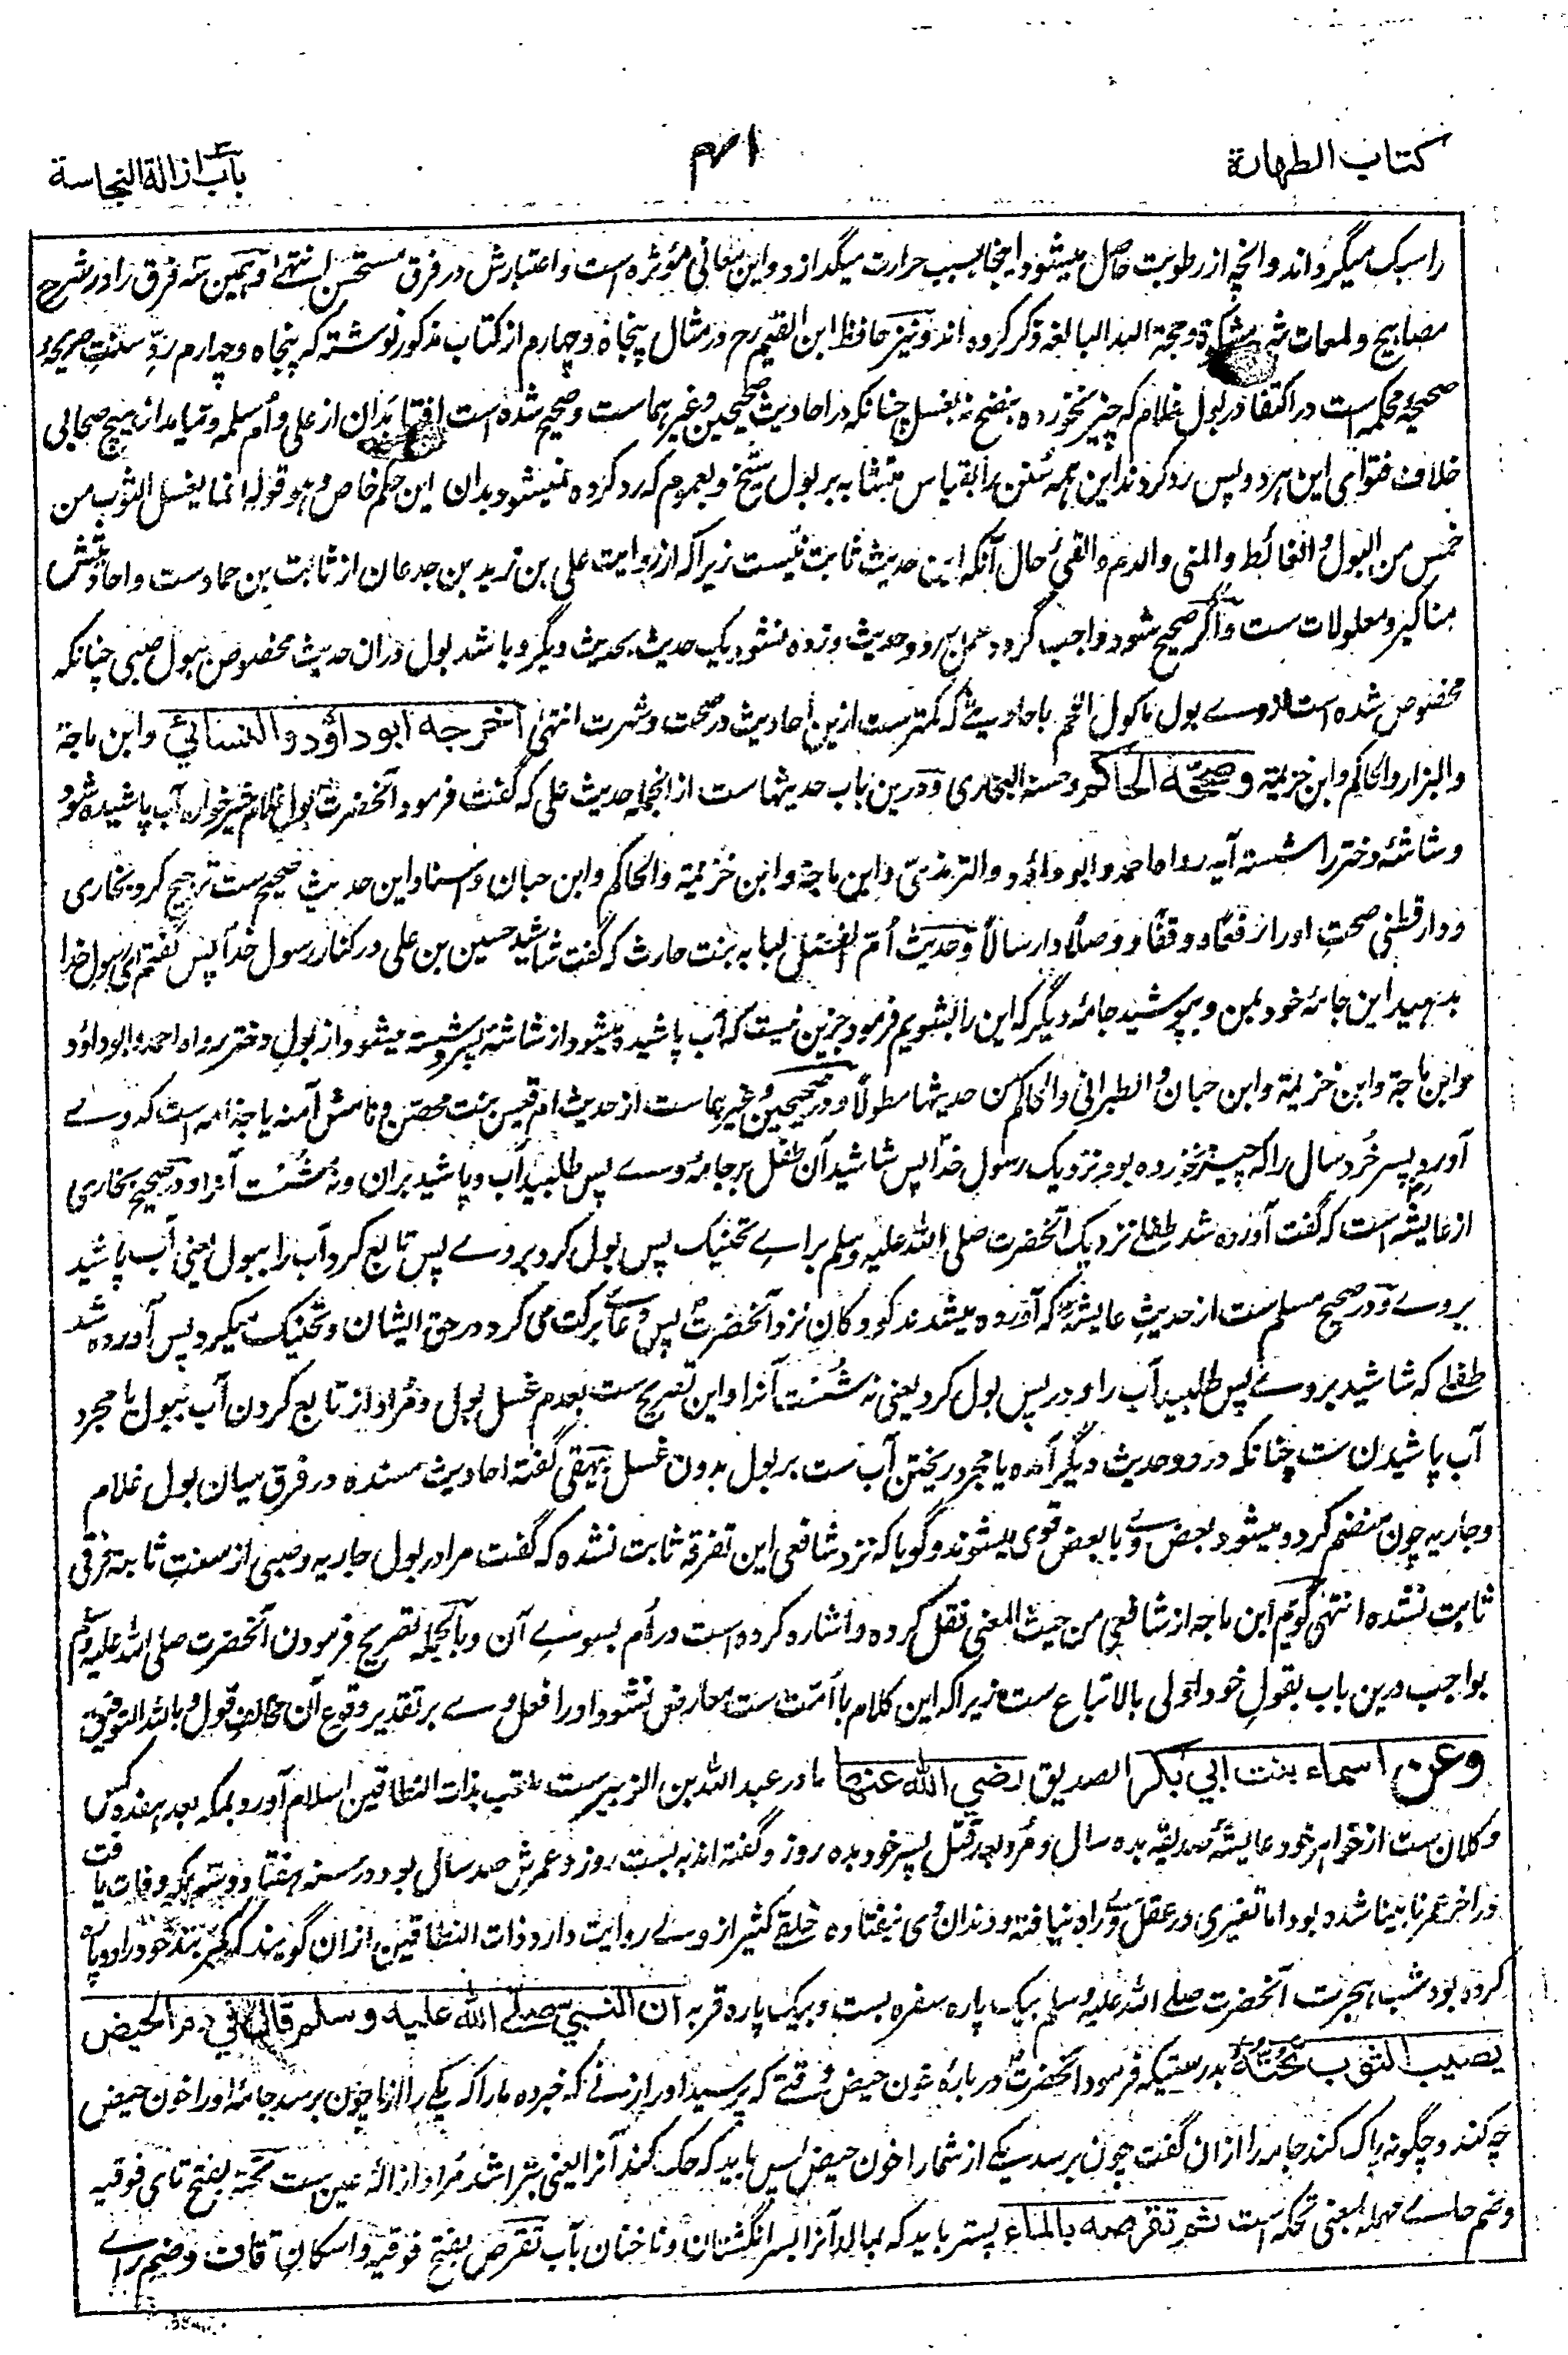 كتاب الطهارة
۴۱
باب ازالة النجاسة
را سبک میگرداند و آنچه از رطوبت حاصل میشود اینجا بسبب حرارت میگدازد و این معانی مؤثره است و اعتبارش در فرق مستحسن انتهی و همین سه فرق را در شرح
مصابیح و لمعات شرح مشکوة و حجة الله البالغه ذکر کرده اند و نیز حافظ ابن القیم رح در مثال پنجاه و چهارم از کتاب مذکور نوشته که پنجاه و چهارم ردِّ سنتِ صریحهٔ
صحیحهٔ محکمه است در اکتفا در بول غلام که چیز نخورده بنضح نه بغسل چنانکه در احادیث صحیحین و غیر هماست و صحیح شده است افتا بدان از علی و اُم سلمه و نیامد از هیچ صحابی
خلاف فتوای این هر دو پس رد کردند این همه سُنن را بقیاس متشابه بر بول شیخ و بعموم که رد کرده نمیشود بدان این حکم خاص و هو قوله انما یغسل الثوب من
خمس من البول و الغائط و المنی و الدم و القیٔ حال آنکه این حدیث ثابت نیست زیرا که از روایت علی بن زید بن جدعان از ثابت بن حماد ست و احادیثش
مناکیر و معلولات ست و اگر صحیح شود واجب گردد عمل بهر دو حدیث و زده نشود یک حدیث بحدیث دیگر و باشد بول دران حدیث مخصوص ببول صبی چنانکه
مخصوص شده است از وے بول ماکول اللحم باحادیثے که کمتر ست ازین احادیث در صحت و شهرت انتهیٰ اخرجه ابو داؤد و النسائي و ابن ماجة
و البزار و الحاکم و ابن خزیمة وصححه الحاكم و حسنه البخاری و درین باب حدیثهاست از انجمله حدیث علی که گفت فرمود آنحضرت بول غلام شیرخواره آب پاشیده شود
و شاشهٔ دختر را شسته آید رواه احمد و ابو داؤد و الترمذیّ و ابن ماجة و ابن خزیمة و الحاکم و ابن حبان و اسناد این حدیث صحیح ست ترجیح کرد بخاری
و دارقطنی صحتِ او را رفعًا و وقفًا و وصلًا و ارسالًا و حدیث اُمّ الفضل لبابه بنت حارث که گفت شاشید حسین بن علی در کنار رسول خدا پس گفتم ای رسول خدا
بدهید این جامهٔ خود بمن و بپوشید جامهٔ دیگر که این را بشویم فرمود جزین نیست که آب پاشیده میشود از شاشهٔ پسر و شسته میشود از بولِ دختر رواه احمد و ابو داؤد
و ابن ماجة و ابن خزیمة و ابن حبان و الطبرانی و الحاکم من حدیثها مطولًا و در صحیحین و غیر هماست از حدیث ام قیس بنت محصن و نامش آمنه یا جذامه است که وے
آورد پسر خُرد سال را که چیز نخورده بود نزدیک رسول خدا پس شاشید آن طفل بر جامهٔ وے پس طلبید آب و پاشید بران و نه شُست آنرا و در صحیح بخاری
از عایشه است که گفت آورده شد طفلے نزدیک آنحضرت صلی الله علیه وسلم براے تحنیک پس بول کرد بر وے پس تابع کرد آب را ببول یعنی آب پاشید
بر وے و در صحیح مسلم ست از حدیثِ عایشه که آورده میشدند کودکان نزد آنحضرت پس دعاے برکت می کرد در حق ایشان و تحنیک میکرد پس آورده شد
طفلے که شاشید بر وے پس طلبید آب را و در پس بول کرد یعنی نه شُست آنرا و این تصریح ست بعدم غسل بول و مُراد از تابع کردن آب ببول یا مجرد
آب پاشیدن ست چنانکه در دو حدیث دیگر آمده یا مجرد ریختن آب ست بر بول بدون غسل بیهقی گفته احادیث مسنده در فرق میان بول غلام
و جاریه چون منضم گردد میشود بعض وے با بعض قوی میشوند و گویا که نزد شافعی این تفرقه ثابت نشده که گفت مراد ر بول جاریه و صبی از سنتِ ثابته فرقی
ثابت نشده انتهی گویم ابن ماجه از شافعی من حیث المعنی نقل کرده و اشاره کرده است در اُم بسوے آن و بالجمله تصریح فرمودن آنحضرت صلی الله علیه وسلم
بواجب درین باب بقولِ خود اولی بالاتباع ست زیرا که این کلام با امّت ست معارض نشود او را فعل وے بر تقدیر وقوع آن مخالفِ قول و بالله التوفیق
وعن اسماء بنت ابي بكر الصديق رضي الله عنها مادر عبد الله بن الزبیر ست ملقب بذات النطاقین اسلام آورد بمکه بعد هفده کس
و کلان ست از خواهر خود عایشهٔ صدیقه بده سال و مُرد بعد قتل پسر خود بده روز و گفته اند به بست روز و عمرش صد سال بود در سنه هفتاد و سه بمکه وفات یافت
در آخر عمر نابینا شده بود اما تغیری در عقل وے راه نیافته و دندان وی نیفتاده خلقے کثیر از وے روایت دارد ذات النطاقین ازان گویند که کمر بند خود را دو پاره
کرده بود شب هجرت آنحضرت صلے الله علیه وسلم بیک پاره سفره بست و بیک پاره قربه ان النبي صلے الله عليه وسلم قال في دم الحيض
يصيب الثوب تحته بدرستیکه فرمود آنحضرت دربارهٔ خون حیض وقتے که پرسید او را زنے که خبر ده ما را که یکے را از ما چون برسد جامهٔ او را خون حیض
چه کند و چگونه پاک کند جامه را ازان گفت چون برسد یکے از شما را خون حیض پس باید که حک کند آنرا یعنی بتراشد مُراد ازالهٔ عین ست تحته بفتح تای فوقیه
و ضم حاے مهمله بمعنی تحکه است ثم تقرصه بالماء پستر باید که بمالد آنرا بسر انگشتان و ناخنان بآب تقرص بفتح فوقیه و اسکانِ قاف و ضم راے